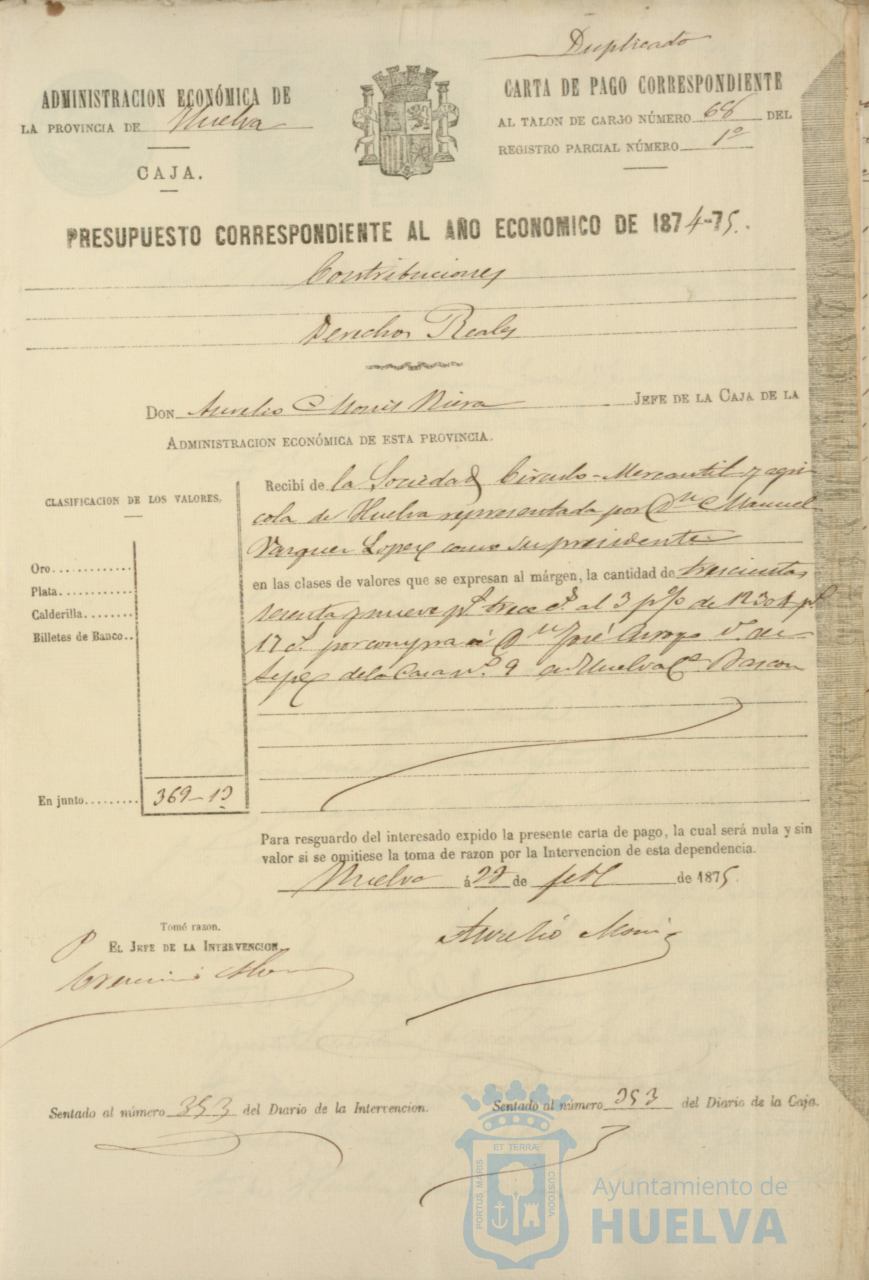 Duplicado
ADMINISTRACION ECONÓMICA DE
LA PROVINCIA DE Huelva
CAJA.
CARTA DE PAGO CORRESPONDIENTE
AL TALON DE CARJO NÚMERO 68 DEL
REGISTRO PARCIAL NÚMERO 1º
PRESUPUESTO CORRESPONDIENTE AL AÑO ECONOMICO DE 1874-75.
Contribuciones
Derechos Reales
DON Aurelio Monis JEFE DE LA CAJA DE LA
ADMINISTRACION ECONÓMICA DE ESTA PROVINCIA.
CLASIFICACION DE LOS VALORES.
Oro
Plata
Calderilla
Billetes de Banco
En junto 369-13
Recibí de la Sociedad Círculo-Mercantil y agri-
cola de Huelva representada por Dn Manuel
Vazquez Lopez como su presidente
en las clases de valores que se expresan al márgen, la cantidad de trescientas
sesenta y nueve ps trece cs al 3 p% de 12304 ps
17 cs por compra á Dn José Arroyo vo de
Lepe de la Casa nº 9 de Huelva Ce
Para resguardo del interesado expido la presente carta de pago, la cual será nula y sin
valor si se omitiese la toma de razon por la Intervencion de esta dependencia.
Huelva á de de 1875.
Tomé razon.
EL JEFE DE LA INTERVENCION,
Aurelio Monis
Sentado al número 353 del Diario de la Intervencion.
Sentado al número 353 del Diario de la Caja.
ET TERRA
PORTUS MARIS
CUSTODIA
Ayuntamiento de
HUELVA